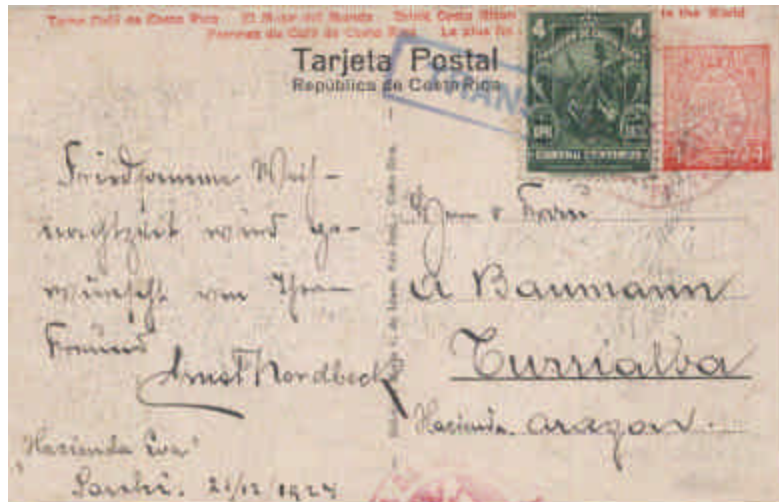 Tome Café de Costa Rica El Mejor del Mundo Drink Costa Rican in the World
Prennez du Café de Costa Rica Le plus fin
Tarjeta Postal
República de Costa Rica
TRANS
4 4
CUATRO CENTIMOS
Friedsame Weih-
nachtzeit wird ge-
wünscht von Ihrem
Freund
Ernst Nordbeck
"Hacienda Eva"
Sarchi. 21/12/1924
Herrn & Frau
A Baumann
Turrialba
Hacienda Aragon.